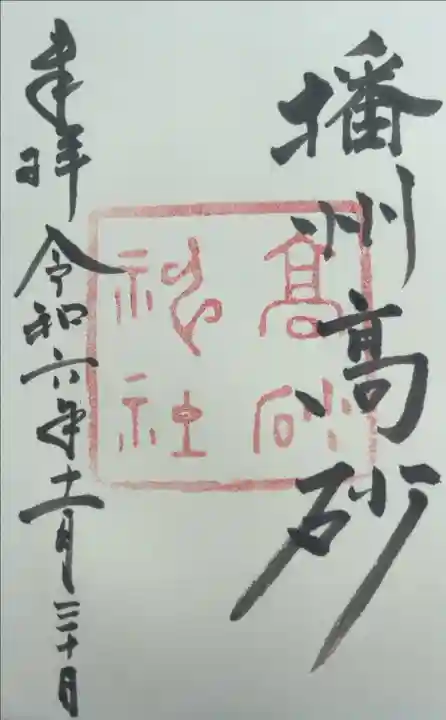 播州高砂
髙砂
神社
奉拝
令和六年十一月三十日